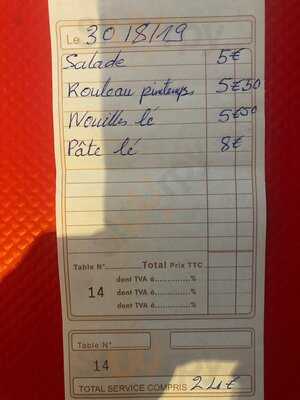 Le 30/8/19
Salade 5€
Rouleau printemps 5€50
Nouilles lé 5€50
Pâte lé 8€
Table N° Total Prix TTC
dont TVA à..............%
14 dont TVA à..............%
dont TVA à..............%
Table N°
14
TOTAL SERVICE COMPRIS 24€